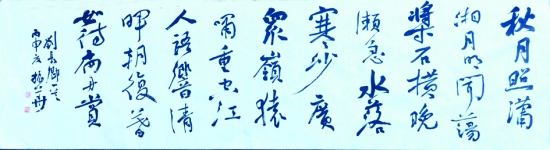 秋月照瀟
湘月明聞蕩
槳石橫晚
瀨急水落
寒沙廣
衆嶺猿
嘯重空江
人語響清
暉朝復暮
如待扁舟賞
劉長卿
丙申夏